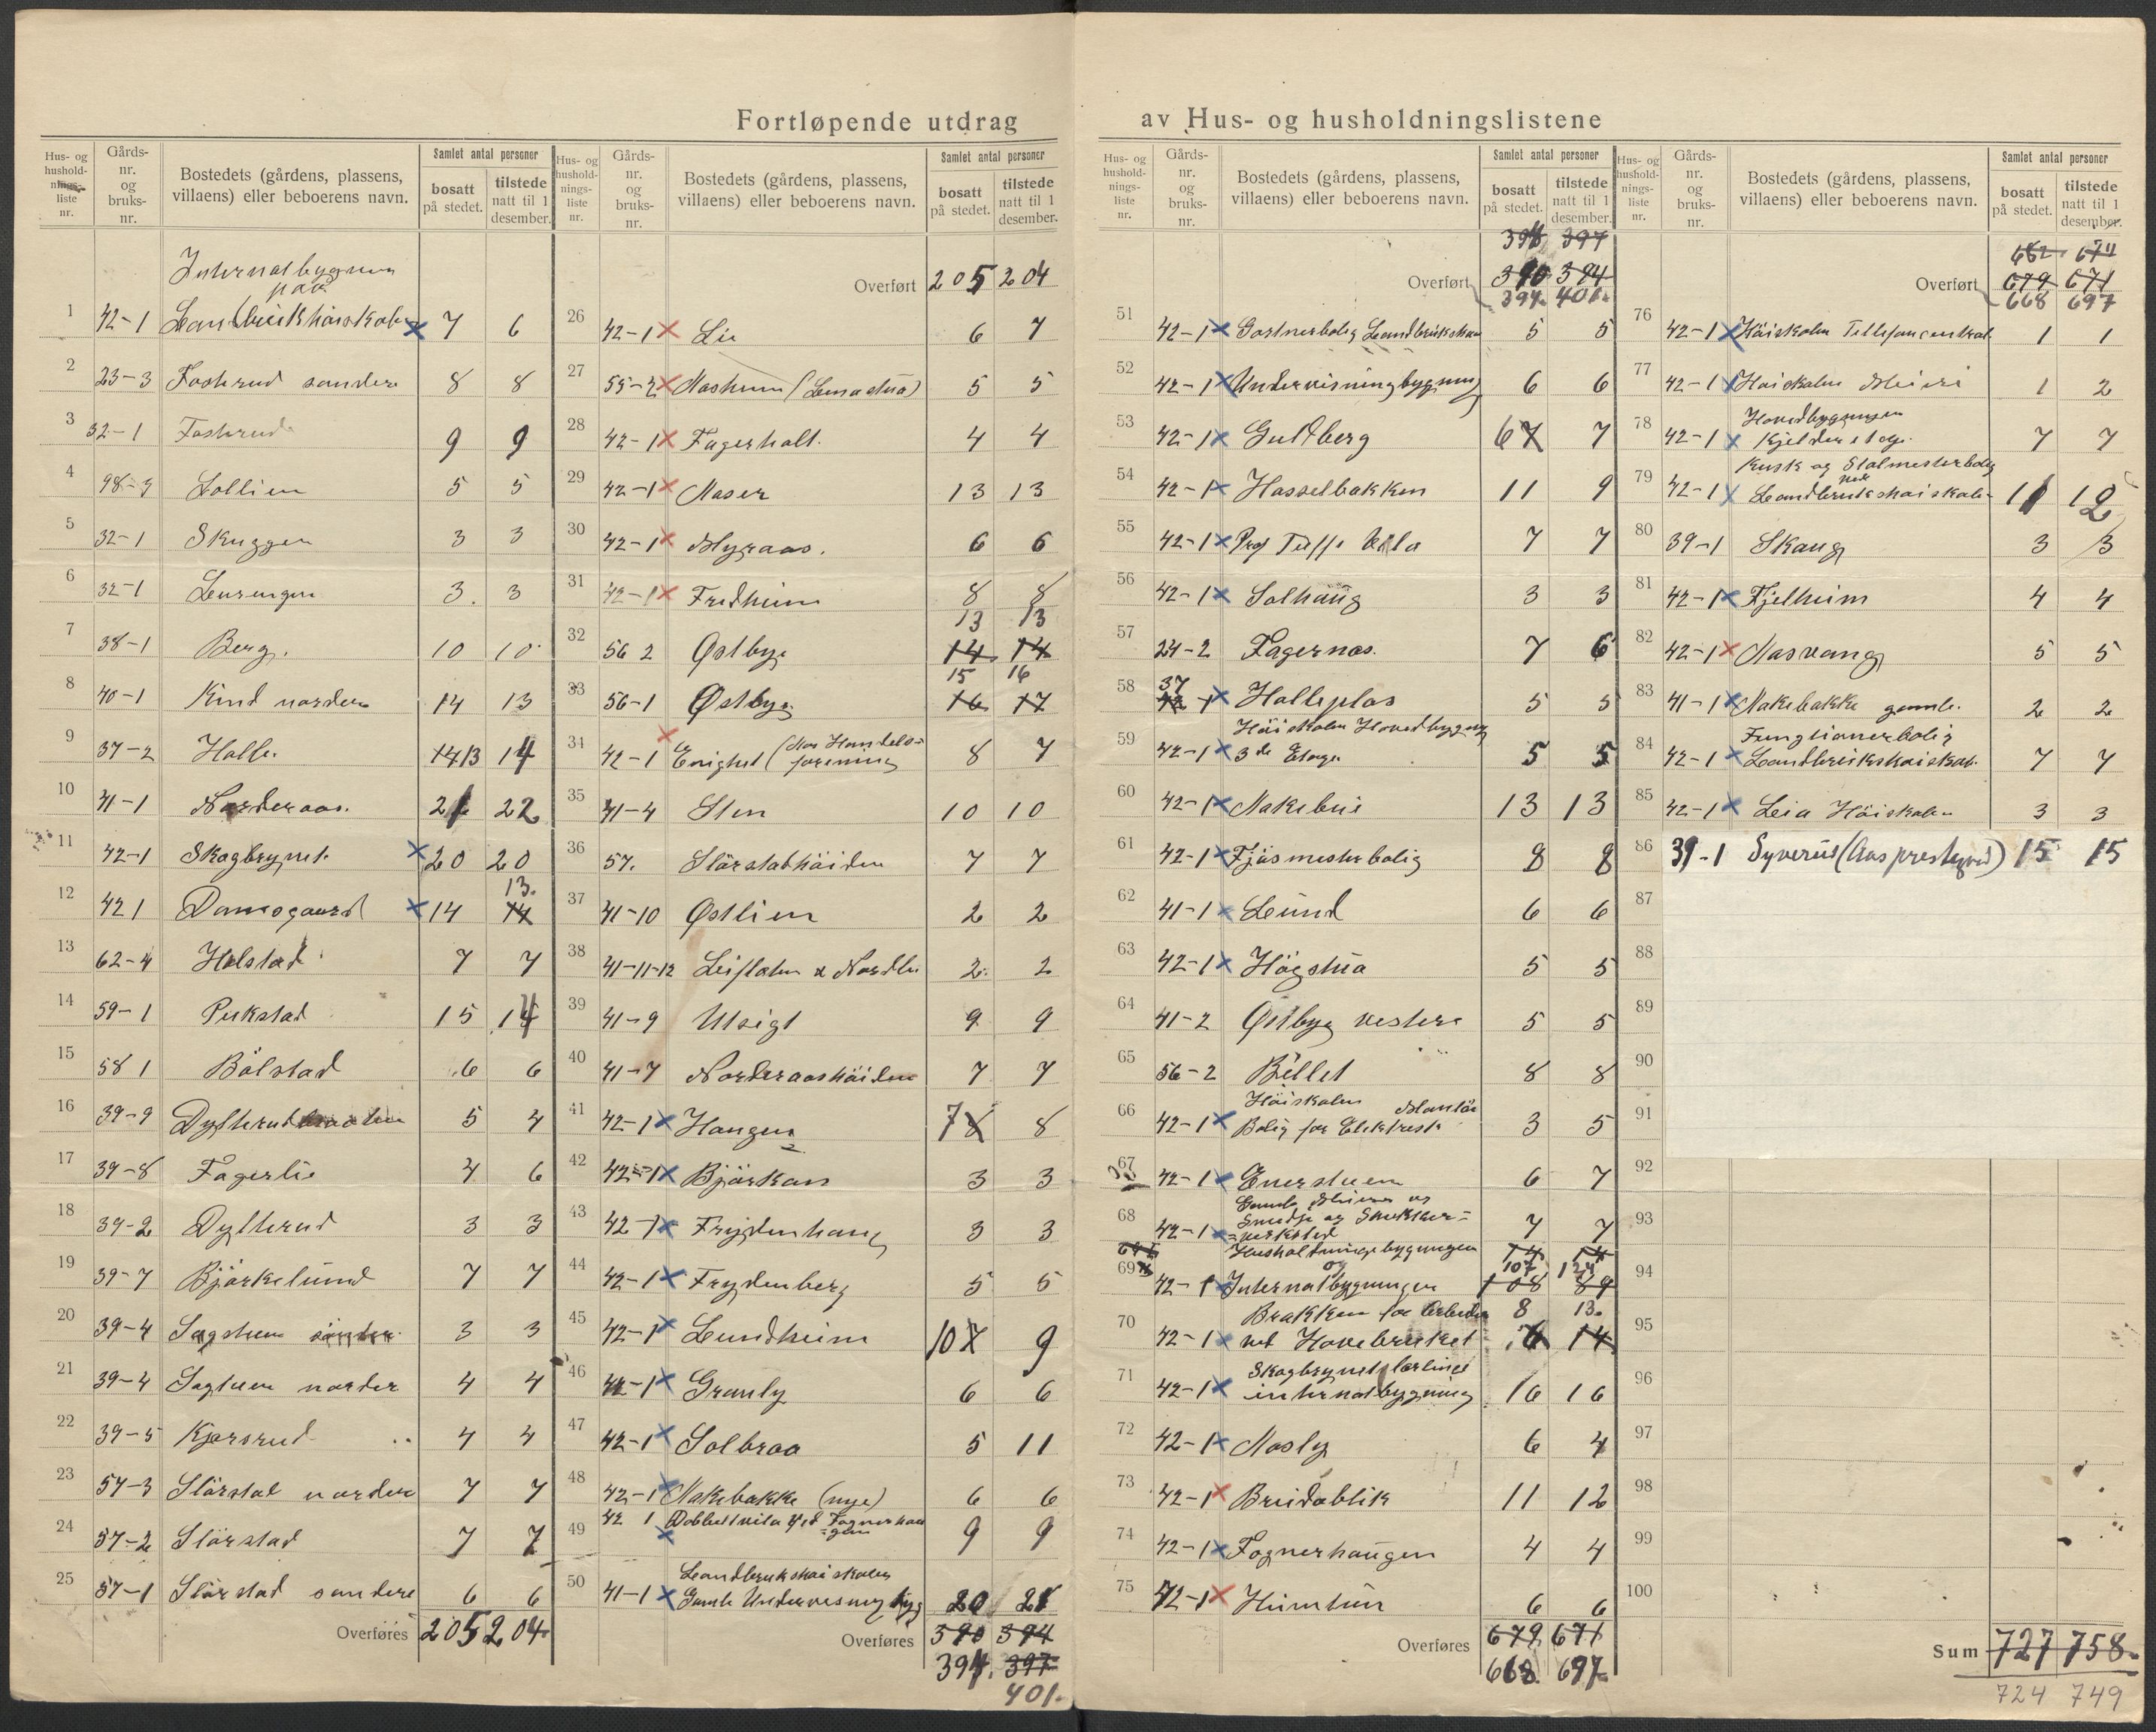 Fortløpende utdrag av Hus- og husholdningslistene
Hus- og hushold-nings-liste nr. | Gårds-nr. og bruks-nr. | Bostedets (gårdens, plassens, villaens) eller beboerens navn. | Samlet antal personer | bosatt på stedet. | tilstede natt til 1 desember.
Internatbygnin
paa
1 42-1 Landbrukhøiskolen 7 6
2 23-3 Fosterud søndere 8 8
3 32-1 Fosterud 9 9
4 98-3 Sollien 5 5
5 32-1 Skuggen 3 3
6 32-1 3. 3
7 38-1 Berg. 10 10
8 40-1 Kind nordre 14 13
9 37-2 Holle 14 13 14
10 41-1 Norderaas. 21 22
11 42-1 Skogbrynet 20 20
13.
12 42 1 Damsgaard 14 14
13 62-4 Holstad 7 7
14 59-1 Pukstad 15 14
15 58 1 Bölstad 6 6
16 39-9 Dysterud 5 4
17 39-8 Fagerlie 4 6
18 39-2 Dysterud 3 3
19 39-7 Bjørkelund 7 7
20 39-4 Sagstuen 3 3
21 39-4 Sagstuen norder 4 4
22 39-5 Kjærsrud 4 4
23 57-3 Störstad nordre 7 7
24 57-2 Störstad 7 7
25 57-1 Störstad søndere 6 6
Overføres 205 204
Overført 205 204
26 42-1 Lie 6 7
27 55-2 Naskum (Lensastua) 5 5
28 42-1 Fagerholt. 4 4
29 42-1 Maser 13 13
30 42-1 Myraas. 6 6
31 42-1 Fredheim 8 8
13 13
32 56 2 Østby 14 14
15 16
33 56-1 Østby 16 17
34 42-1 Enighet (Aas Handels-forening 8 7
35 41-4 Sten 10 10
36 57. Störstadhöiden 7 7
37 41-10 Østlien 2 2
38 41-11-12 & Nordli 2 2
39 41-9 Utsigt 9 9
40 41-7 Norderaashöiden 7 7
41 42-1 Haugen 7 8 8
42 42-1 Björkan 3 3
43 42-1 Frydenhaug 3 3
44 42-1 Frydenberg 5 5
45 42-1 Lundheim 10 9
46 42-1 Granly 6 6
47 42-1 Solbraa 5 11
48 42-1 Nakebakke (nye) 6 6
49 42 1 Dobbeltvila ved Fagnerhaugen 9 9
Landbrukshøiskolens
50 41-1 Gamle Undervisning byg 20 21
Overføres 390 394
394. 397
401.
398 397
Overført 390 394
394 401.
51 42-1 Gartnerbolig Landbrukskun 5 5
52 42-1 Undervisningbygning 6 6
53 42-1 Guldberg 6 7 7
54 42-1 Hasselbakken 11 9
55 42-1 Prof Tuffs Vila 7 7
56 42-1 Solhaug 3 3
57 24-2 Fagernæs. 7 6
37
58 42-1 Holleplas 5 5
Höiskolen Hovedbygning
59 42-1 3de Etage 5 5
60 42-1 Nakebui 13 13
61 42-1 Fjösmesterbolig 8 8
62 41-1 Lund 6 6
63 42-1 Högstua 5 5
64 41-2 Østby vestere 5 5
65 56-2 Billet 8 8
Höiskolen Montör
66 42-1 Bolig for Elektrisk 3 5
67 42-1 Enerstuen 6 7
Gamle Meieri og
68 42-1 Smedje og Snekker-verksted 7 7
Husholdningsbygningen 14 14
og 107 124
69 42-1 Internatbygningen 108 89
Brakken for Arbeider 8 13.
70 42-1 ved Havebruket 14
Skogbrynet lærlings
71 42-1 internatbygning 16 16
72 42-1 Nasly 6 4
73 42-1 Breidablik 11 12
74 42-1 Fognerhaugen 4 4
75 42-1 Heimtun 6 6
Overføres 679 671
668 697
682 674
Overført 679 671
668 697
76 42-1 Höiskolen Tellefoncentral. 1 1
77 42-1 Höiskolen Meieri 1 2
Hovedbygningen
78 42-1 Kjelder etage. 7 7
Kusk og Stalmesterbolig
ved
79 42-1 Landbrukshøiskolen 11 12
80 39-1 Skaug 3 3
81 42-1 Fjelheim 4 4
82 42-1 Aasvang 5 5
83 41-1 Nakebakke gamle. 2 2
Fungtionerbolig
84 42-1 Landbrukshøiskol. 7 7
85 42-1 Leia Höiskolen 3 3
86 39-1 Syverud (Aas prestegård) 15 15
87
88
89
90
91
92
93
94
95
96
97
98
99
100
Sum 727 758.
724 749